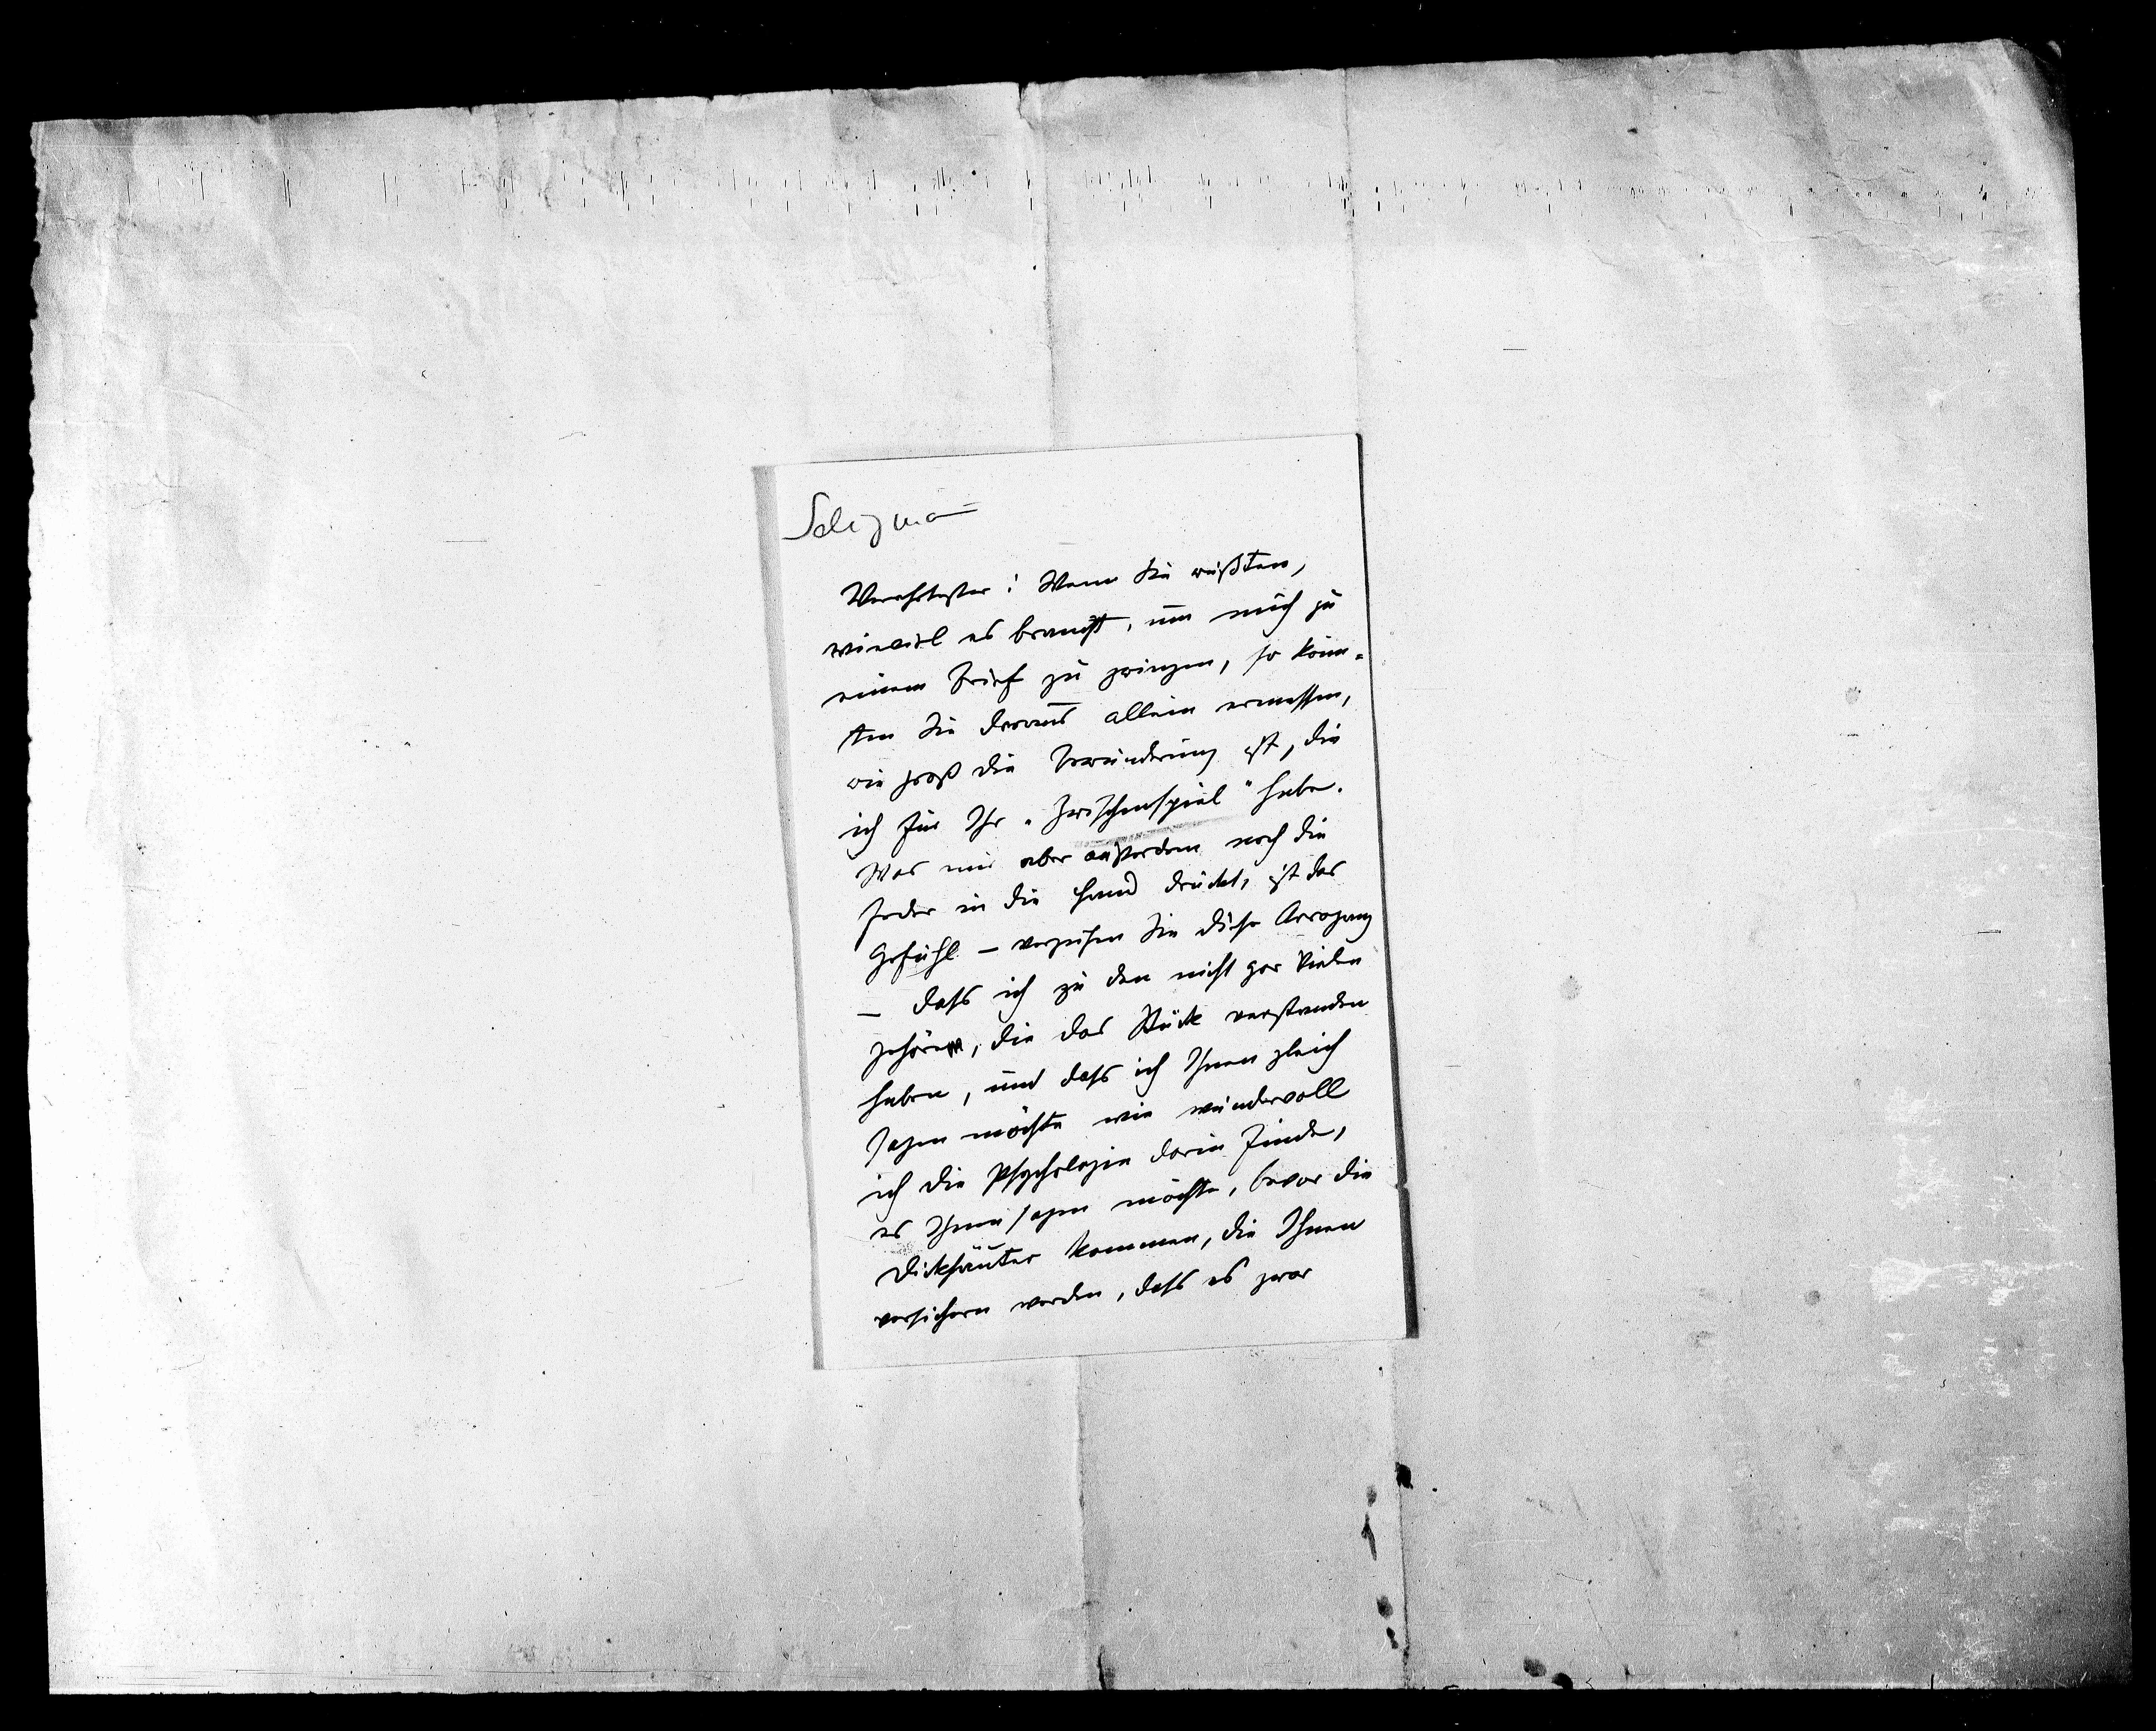 Salzmann
Verehrtester! Wenn Sie wüßten,
wieviel es braucht, um mich zu
einem Brief zu zwingen, so könn-
ten Sie daraus allein ermessen,
wie groß die Bewunderung ist, die
ich für Ihr „Zwischenspiel" habe.
Was mir aber außerdem noch die
Feder in die Hand drückt, ist das
Gefühl – verzeihen Sie diese Arroganz
– dass ich zu den nicht gar Vielen
gehöre, die das Stück verstanden
haben, und dass ich Ihnen gleich
sagen möchte wie wundervoll
ich die Psychologie darin finde,
es Ihnen sagen möchte, bevor die
Dickhäuter kommen, die Ihnen
versichern werden, dass es zwar